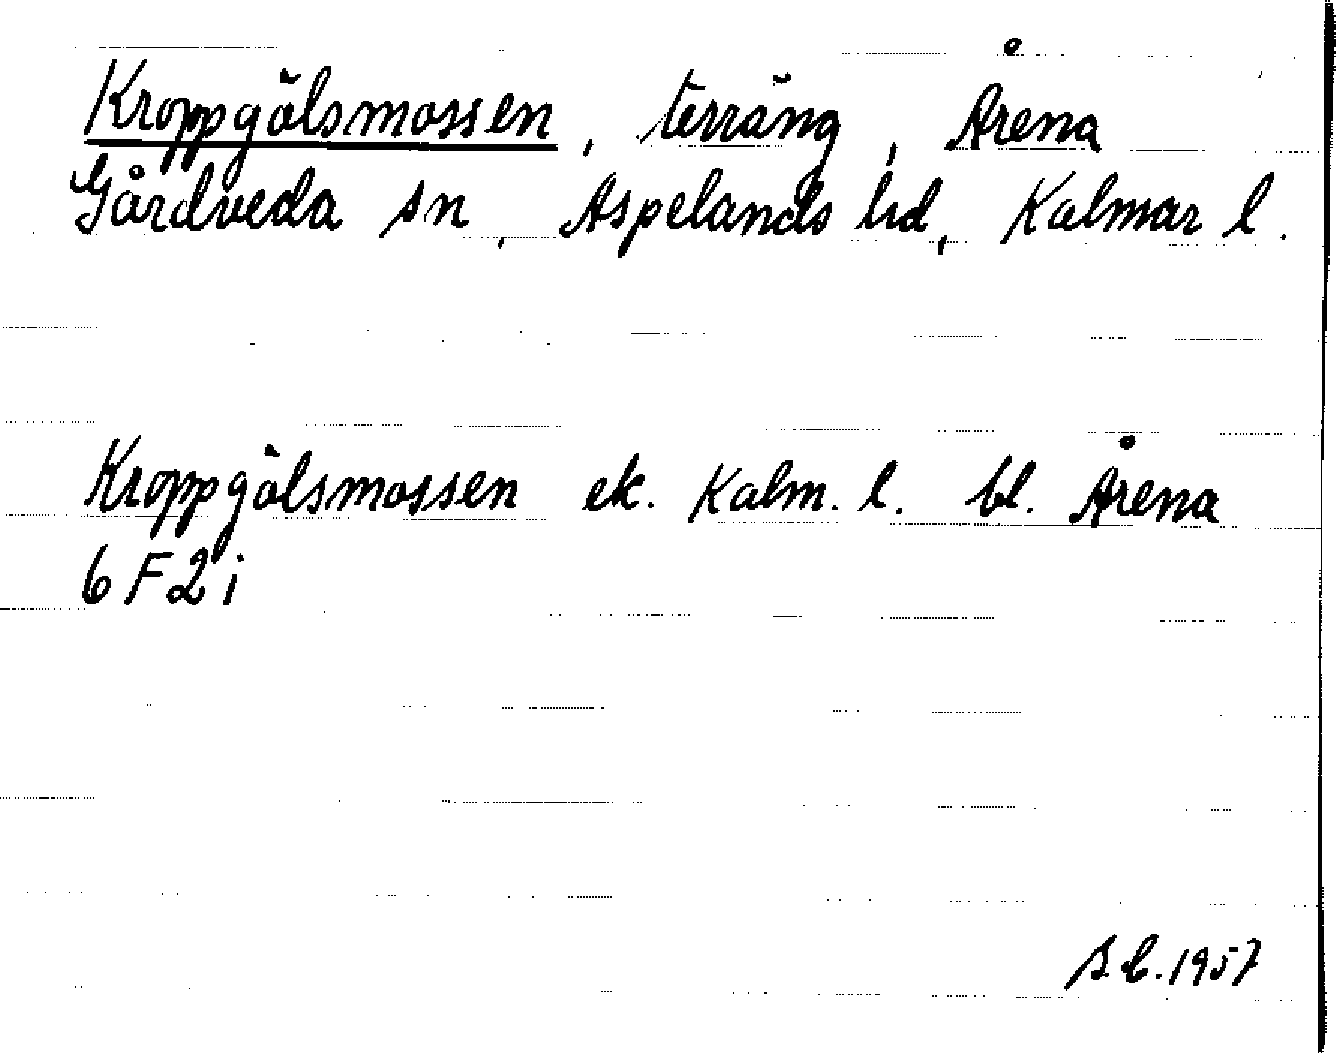 Kroppgölsmossen, terräng, Årena
Gårdveda sn, Aspelands hd, Kalmar l.
Kroppgölsmossen ek. Kalm. l. bl. Årena
6 F 2 i
S.C. 1957